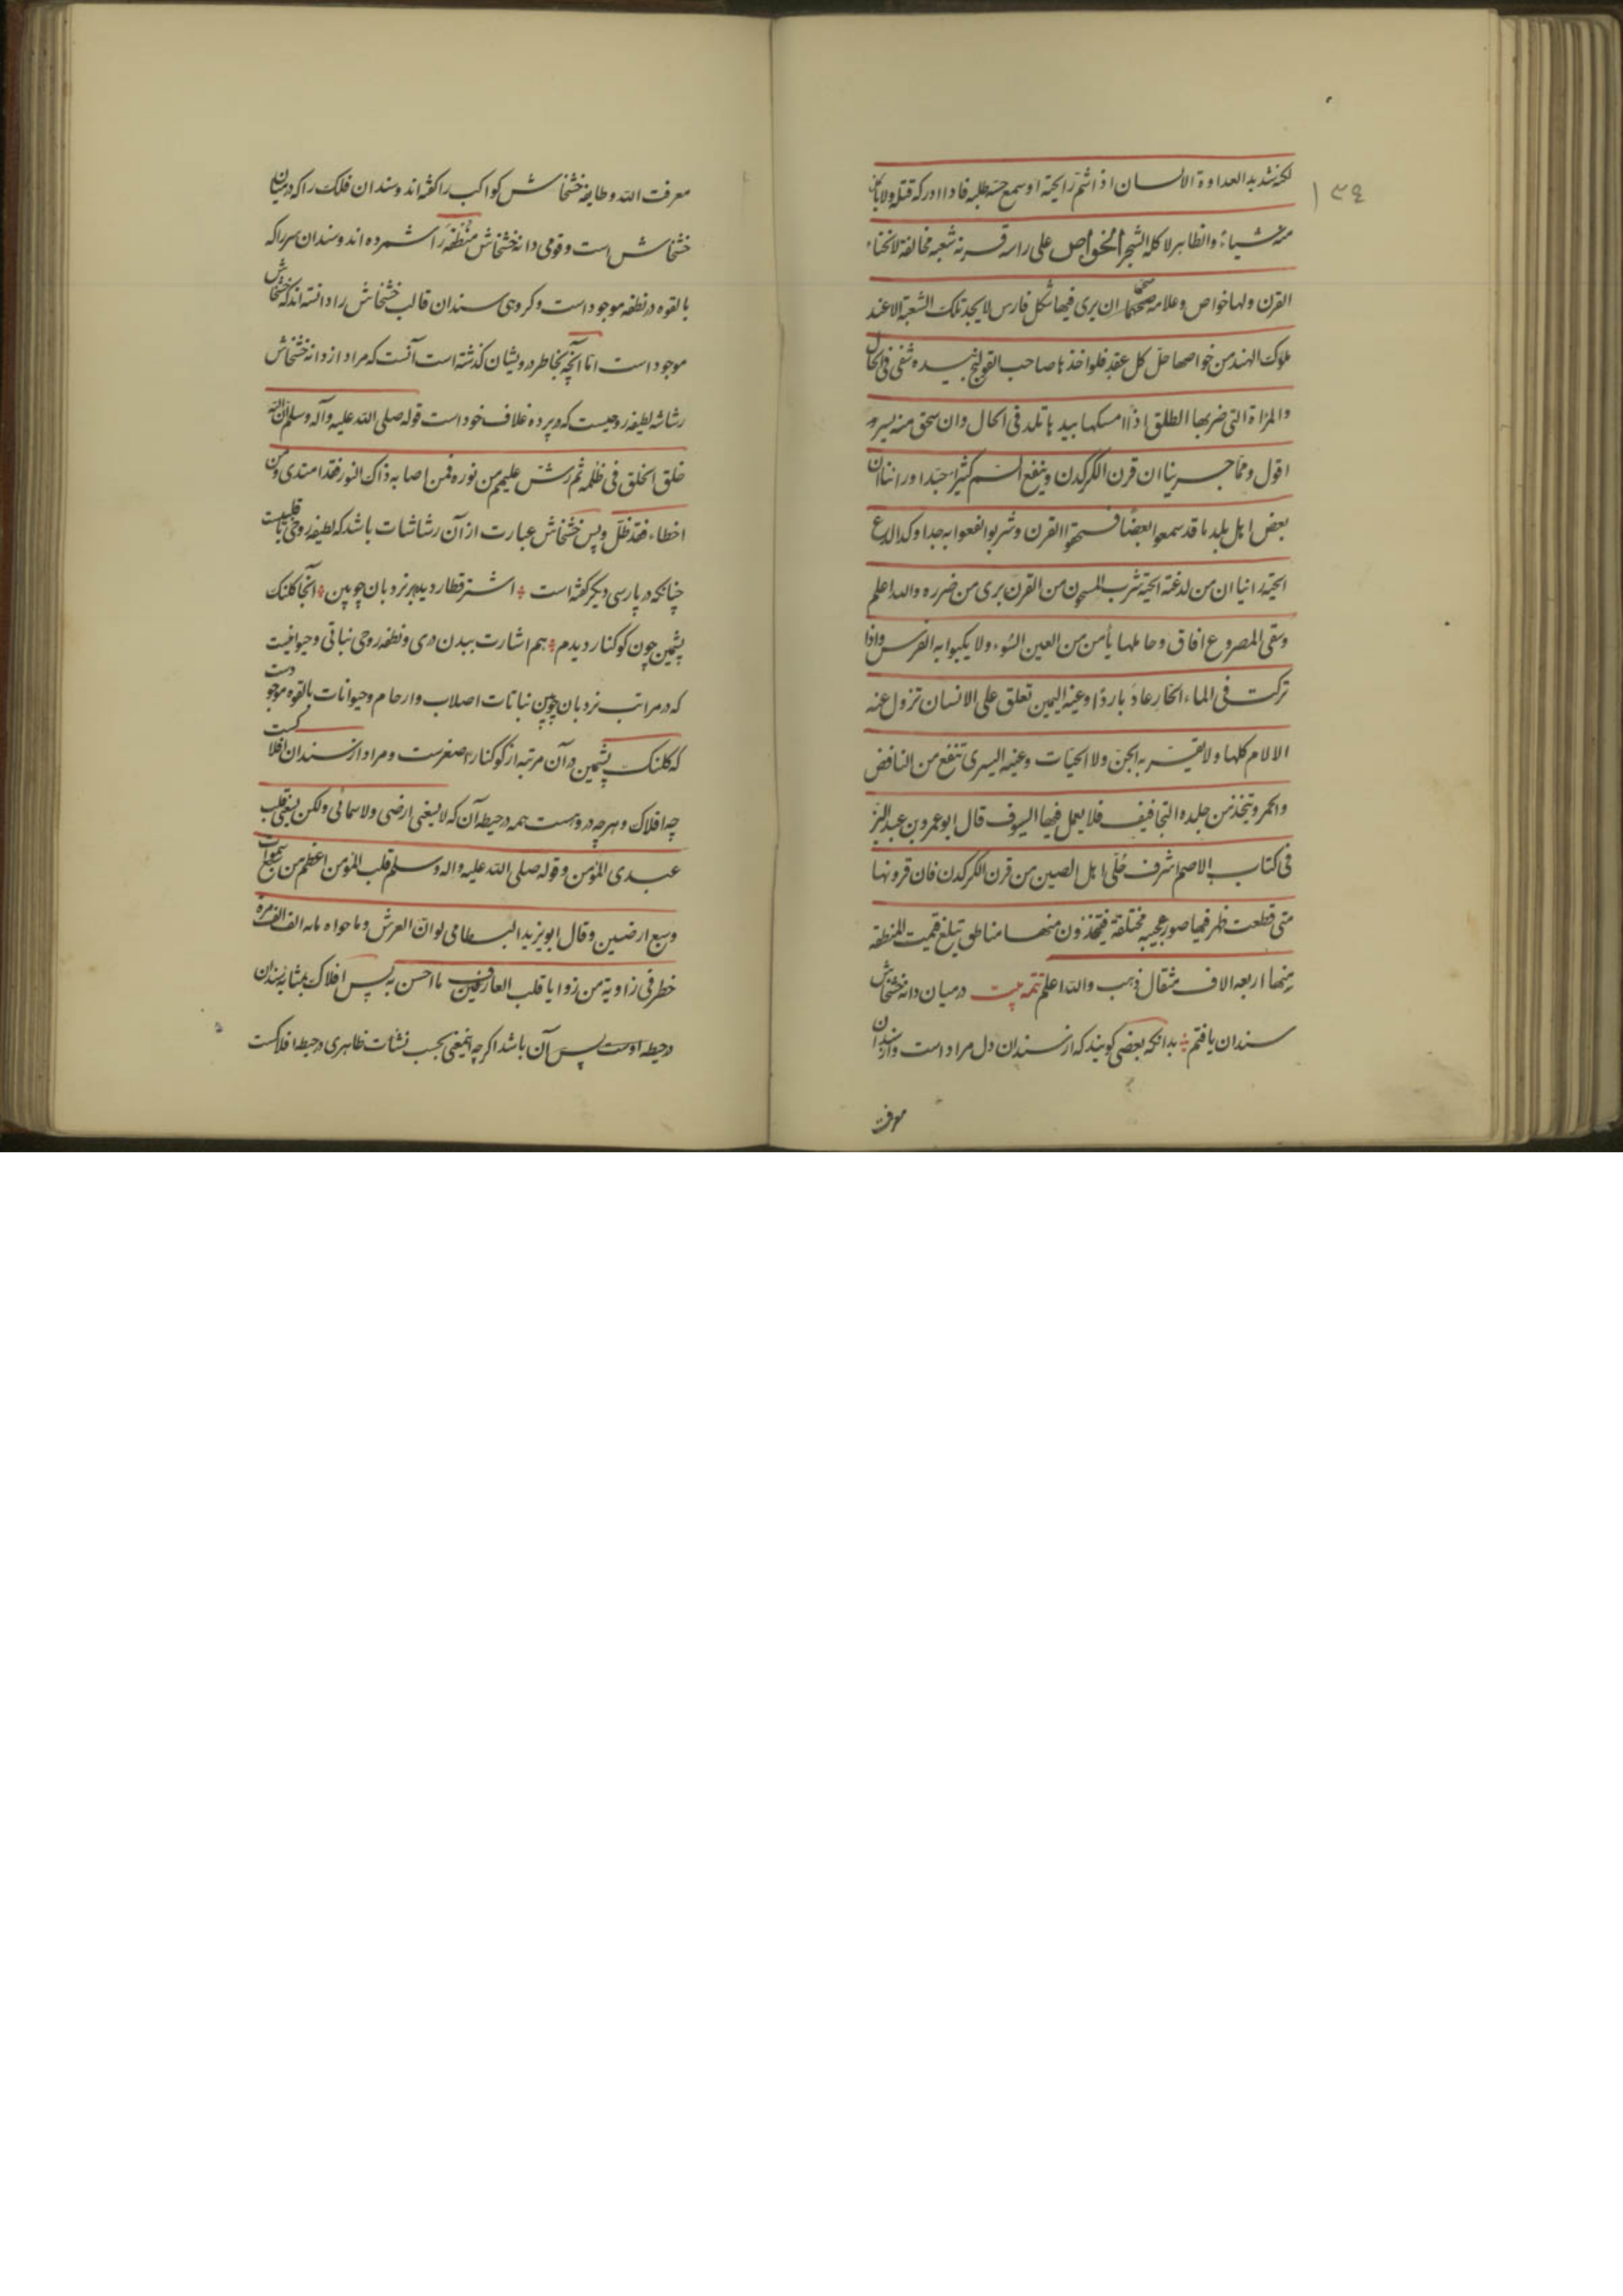 ۱۳۴
لکنه شدید العداوة الانسان اذ اشتم رایحته او سمع حسّه طلبه فاذا ادرکه قتله ولا یاکل
منه شیاءً والظاهر لاکله الشجر الخواص علی راسه قرنه شعبه مخالفة لانحناء
القرن ولها خواص وعلامه صحتها ان یری فیها شکل فارس لایجد تلک الشعبة الا عند
ملوک الهند من خواصها حلّ کل عقدٍ فلو اخذها صاحب القولنج بیده شفی فی الحال
والمراة التی ضربها الطلق اذا امسکها بیدها تلد فی الحال وان سحق منه یسیر و
اقول وممّا جربنا ان قرن الکرکدن وینفع السم کثیرًا جدًا وراینا ان
بعض اهل بلدنا قد سمعوا بعضًا فسحقوا القرن وشربوا نفعوا به جدا وکذا لدغ
الحیّة رانیا ان من لدغته الحیّة شرب المسحون من القرن بری من ضرره والله اعلم
وسقی المصروع افاق وحاملها یأمن من العین السّوء ولا یکبوا به الفرس واذا
ترکت فی الماء الحّار عادَ باردًا وعینه الیمین تعلق علی الانسان تزول عنه
الالام کلها ولا یقربه الجنّ ولا الحیّات وعینه الیسری تنفع من النافض
والحمر ویتّخذ من جلده التجافیف فلا یعمل فیها السیوف قال ابو عمر و بن عبد البّر
فی کتاب الاصم اشرف حُلّی اهل الصین من قرن الکرکدن فان قرونها
متی قطعت ظهر فیها صور عجیبه مختلقة فیتّخذون منهــا مناطق تبلغ قمیت المنطقه
منها اربعه الاف مثقال ذهب والله اعلم تتمه بیت در میان دانه خشخاش
سندان یافتم بدانکه بعضی کویند که از سندان دل مراد است و از دانه
معرفت
معرفت الله و طایفه خشخاش کواکب را کفته اند و سندان فلک را که در میان
خشخاش است و قومی دانه خشخاش نطفه را شمرده اند و سندان سر را که
بالقوه در نطفه موجود است و کروهی سندان قالب خشخاش را دانسته اند که خشخاش
موجود است امّا آنچه بخاطر درویشان کذشته است آنست که مراد از دانه خشخاش
رشاشه لطیفه روحیست که در پرده غلاف خود است قوله صلی الله علیه وآله وسلم انّ الله
خلق الخلق فی ظلمه ثم رش علیهم من نوره فمن اصابه ذاک النور فقد اهتدی ومن
اخطاء فقد ظلّ و پس خشخاش عبارت از آن رشاشات باشد که لطیفه روحی یا قلبیست
چنانکه در پارسی دیکر کفته است اشتر قطار دیدم بر نردبان چوبین آنجا کلنک
پشمین چون کوکنار دیدم هم اشارت ببدن و نطفه روحی نباتی و حیوانیست
که در مراتب نردبان چوبین نباتات اصلاب و ارحام و حیوانات بالقوه موجودست
که کلنک پشمین در آن مرتبه از کوکنار اصغرست و مراد از سندان افلاکست
چه افلاک و هرچه دروست همه در حیطه آن که لا یسعنی ارضی ولا سمائی ولکن یسعنی قلب
عبدی المؤمن وقوله صلی الله علیه واله وسلم قلب المؤمن اعظم من سبع سموات
وسبع ارضین وقال ابو یزید البسطامی لو انّ العرش وما حواه مائه الف الف مره
خطر فی زاویة من زوایا قلب العارفین ما احسن به پس افلاک بمثابه سندان
در حیطه اوست پس آن باشد اکرچه اینمعنی بحسب نشات ظاهری در حیطه افلاکست